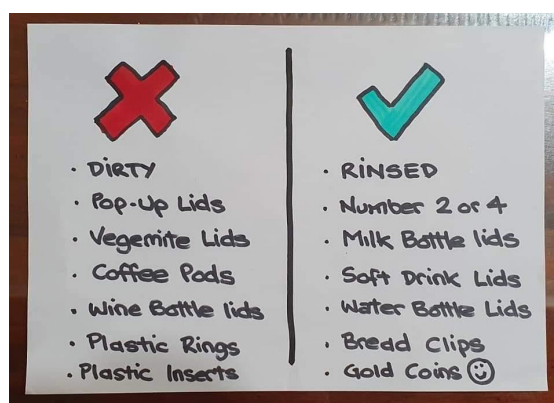 • DIRTY
• Pop-Up Lids
• Vegemite Lids
• Coffee Pods
• Wine Bottle lids
• Plastic Rings
• Plastic Inserts
• RINSED
• Number 2 or 4
• Milk Bottle lids
• Soft Drink Lids
• Water Bottle Lids
• Bread Clips
• Gold Coins ☺